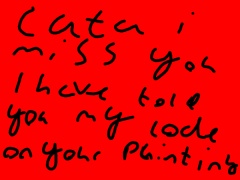 Cata i
miss you
I have told
you my code
on your Painting